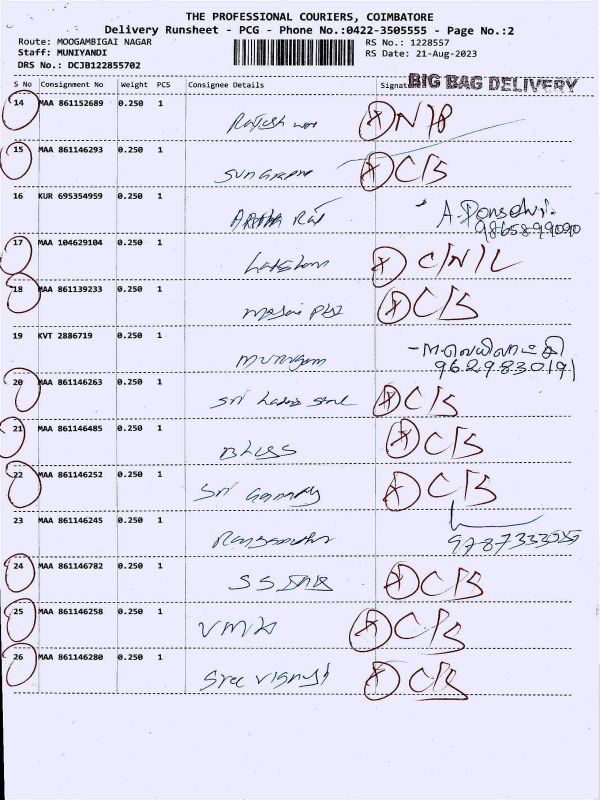 THE PROFESSIONAL COURIERS, COIMBATORE
Delivery Runsheet - PCG - Phone No.:0422-3505555 - Page No.:2
Route: MOOGAMBIGAI NAGAR RS No.: 1228557
Staff: MUNIYANDI RS Date: 21-Aug-2023
DRS No.: DCJB122855702
S No Consignment No Weight PCS Consignee Details Signat BIG BAG DELIVERY
14 MAA 861152689 0.250 1 Rajesh X
15 MAA 861146293 0.250 1 X C/S
16 KUR 695354959 0.250 1 A. Ponselvi. 9865899090
17 MAA 104629104 0.250 1 X C/N/L
18 MAA 861139233 0.250 1 X C/S
19 KVT 2886719 0.250 1 murugam 9629830191
20 MAA 861146263 0.250 1 Sri X C/S
21 MAA 861146485 0.250 1 BLESS X C/S
22 MAA 861146252 0.250 1 Sri X C/S
23 MAA 861146245 0.250 1
24 MAA 861146782 0.250 1 SS X C/S
25 MAA 861146258 0.250 1 VMK X C/S
26 MAA 861146280 0.250 1 Sree Vishnu X C/S